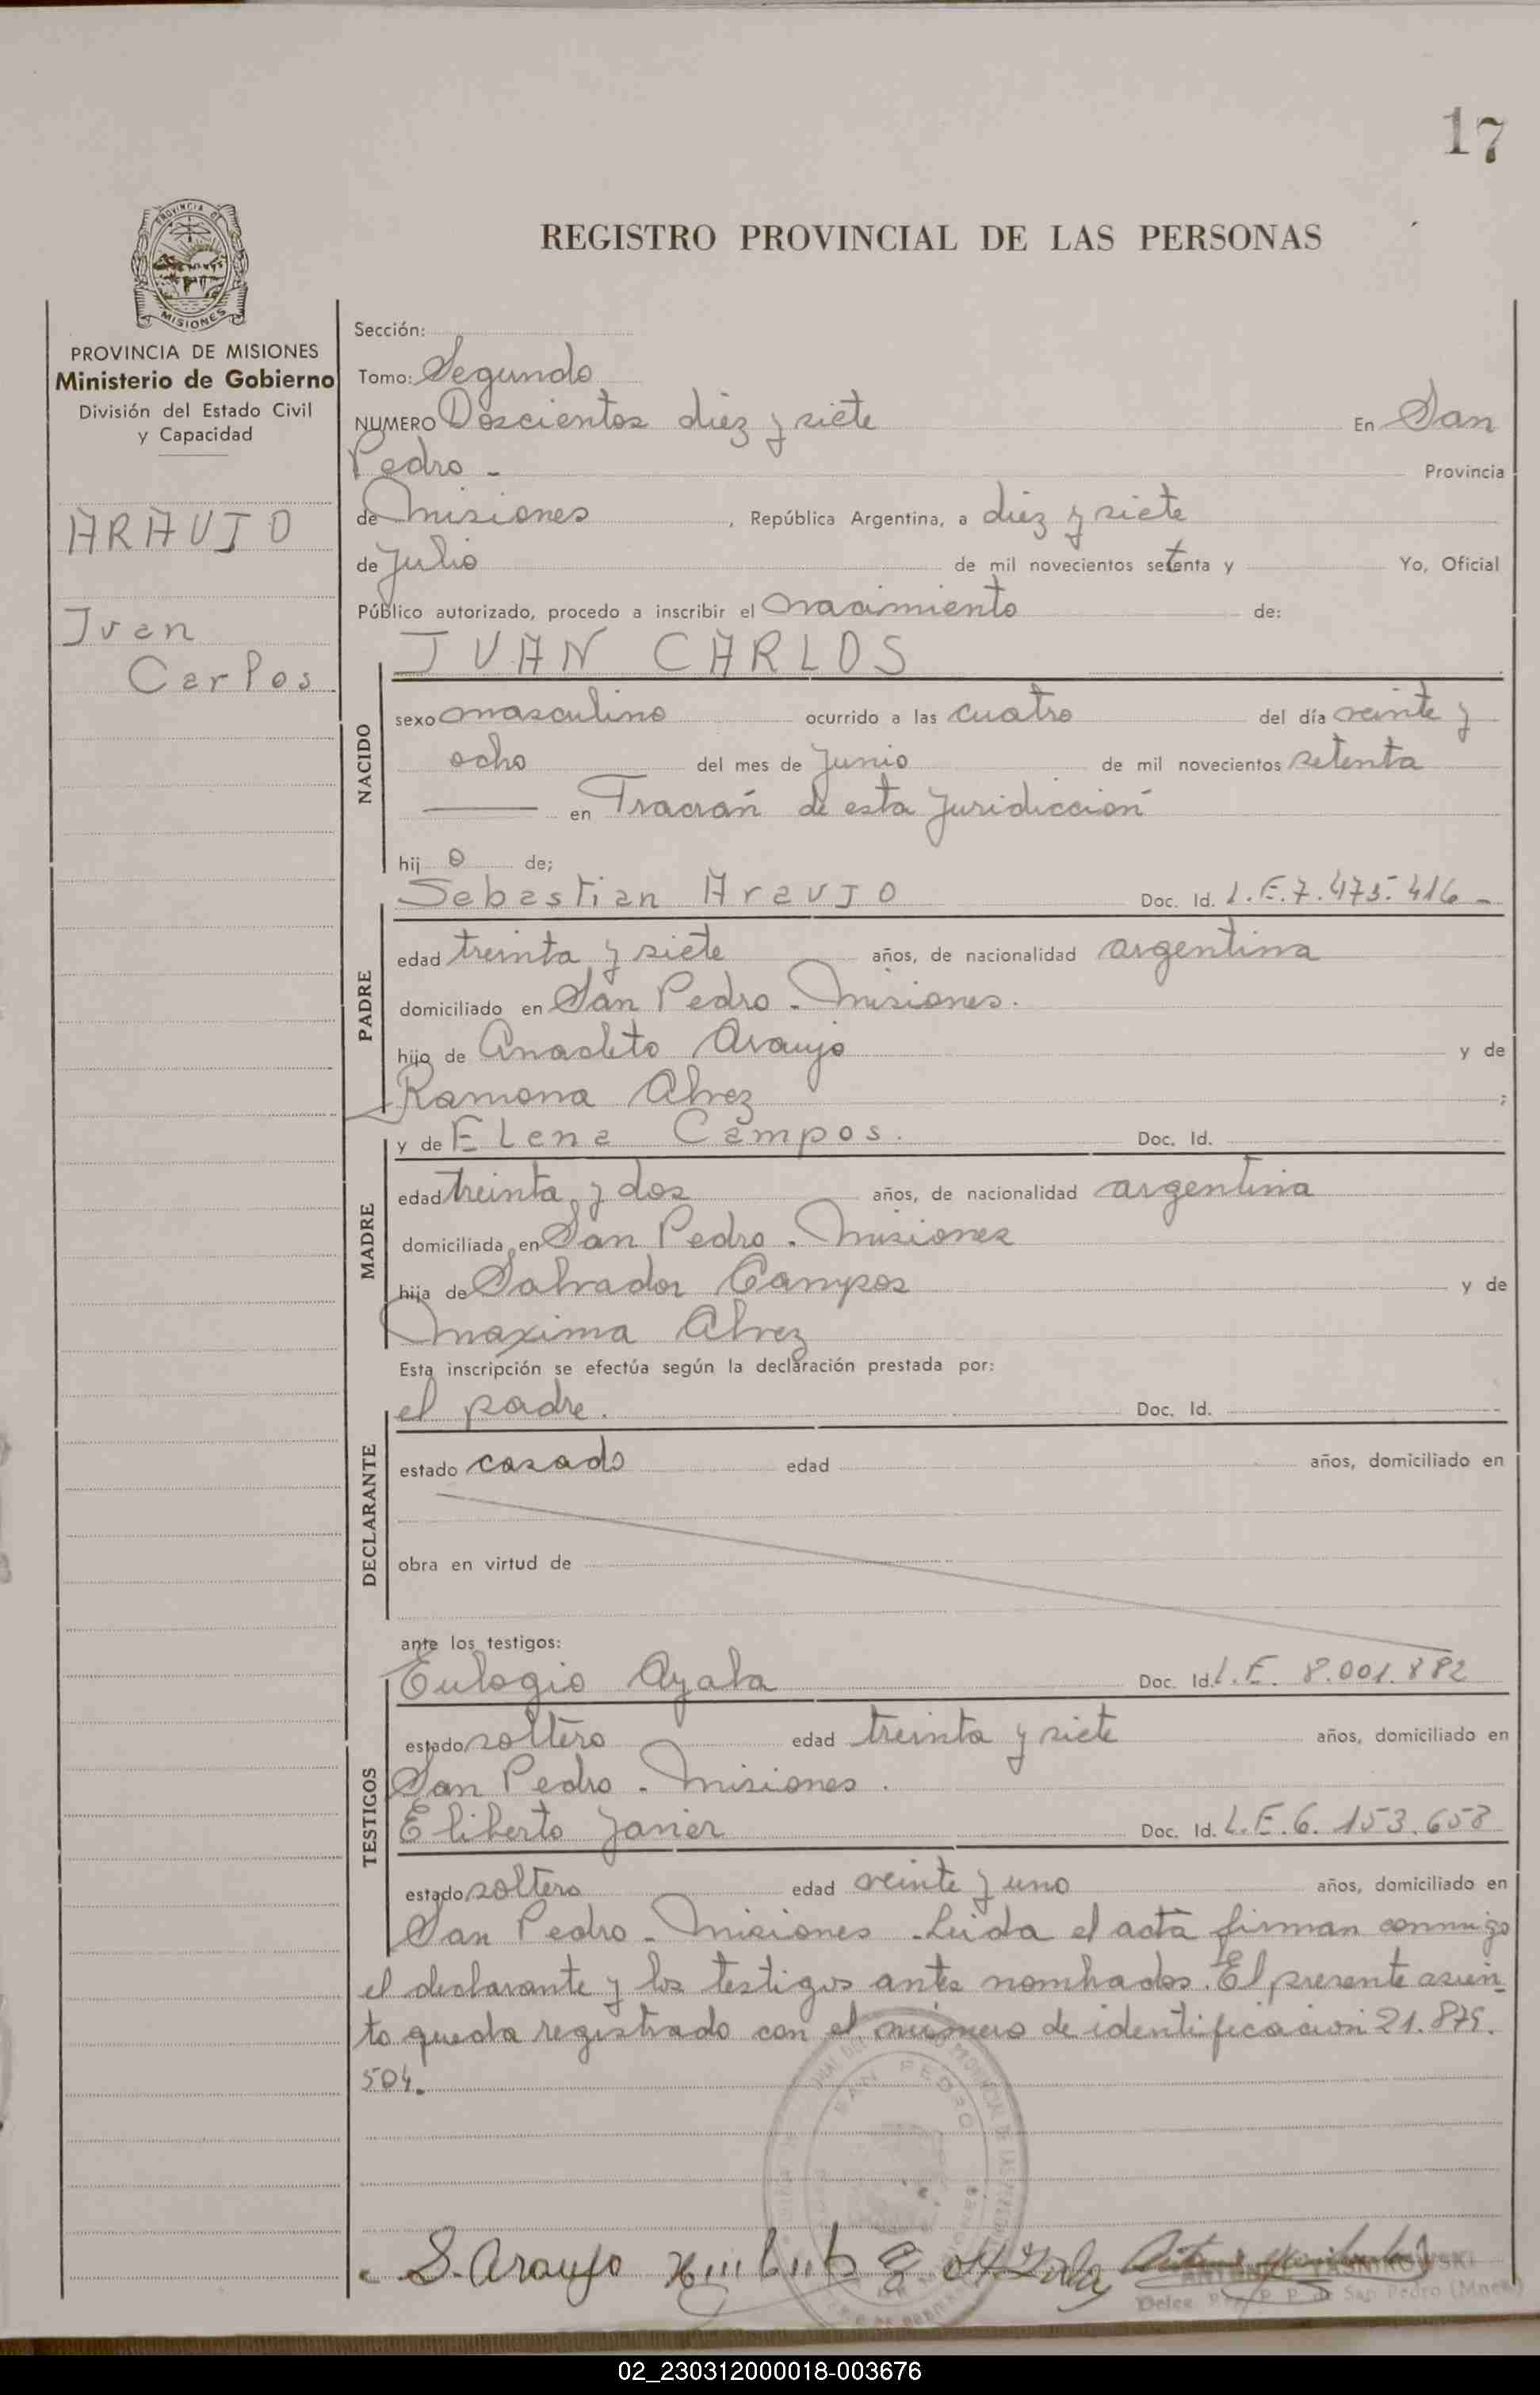 17
PROVINCIA DE
MISIONES
REGISTRO PROVINCIAL DE LAS PERSONAS
PROVINCIA DE MISIONES
Ministerio de Gobierno
División del Estado Civil
y Capacidad
ARAUJO
Juan
Carlos
Sección:
Tomo: Segundo
NUMERO Doscientos diez y siete En San
Pedro - Provincia
de Misiones, República Argentina, a diez y siete
de Julio de mil novecientos setenta y Yo, Oficial
Público autorizado, procedo a inscribir el nacimiento de:
JUAN CARLOS
NACIDO
sexo masculino ocurrido a las cuatro del día veinte y
ocho del mes de Junio de mil novecientos setenta
en Tracrán de esta Juridicción
hij o de;
Sebastian Araujo Doc. Id. L.E.7.475.416-
PADRE
edad treinta y siete años, de nacionalidad argentina
domiciliado en San Pedro - Misiones.
hijo de Anacleto Araujo y de
Ramona Alvez ;
y de Elena Campos. Doc. Id.
MADRE
edad treinta y dos años, de nacionalidad argentina
domiciliada en San Pedro - Misiones
hija de Salvador Campos y de
Maxima Alvez
Esta inscripción se efectúa según la declaración prestada por:
el padre. Doc. Id.
DECLARANTE
estado casado edad años, domiciliado en
obra en virtud de
ante los testigos:
Eulogio Ayala Doc. Id. L.E. 8.001.882
TESTIGOS
estado soltero edad treinta y siete años, domiciliado en
San Pedro - Misiones.
Eliberto Javier Doc. Id. L.E.6.153.658
estado soltero edad veinte y uno años, domiciliado en
San Pedro - Misiones - Leida el acta firman conmigo
el declarante y los testigos antes nombrados. El presente asien-
to queda registrado con el número de identificación 21.875.
504.
SAN PEDRO
S. Araujo
San Pedro (Mnes)
02_230312000018-003676